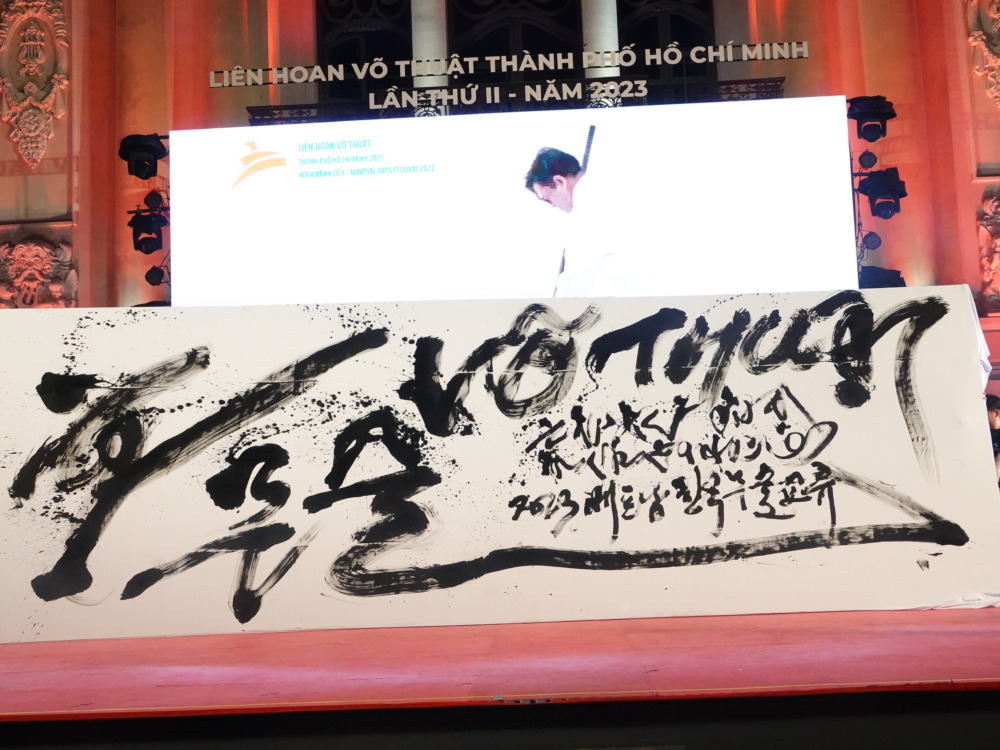 LIÊN HOAN VÕ THUẬT THÀNH PHỐ HỒ CHÍ MINH
LẦN THỨ II - NĂM 2023
LIÊN HOAN VÕ THUẬT
THÀNH PHỐ HỒ CHÍ MINH 2023
HOCHIMINH CITY - MARTIAL ARTS FESTIVAL 2023
무술
VÕ THUẬT
2023 베트남 한국 무술교류